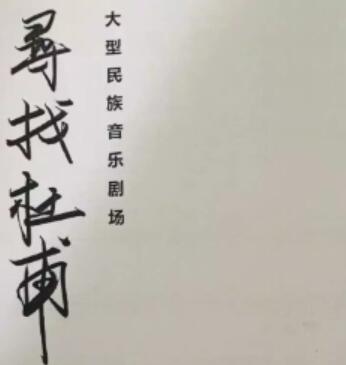 尋找杜甫
大型民族音乐剧场